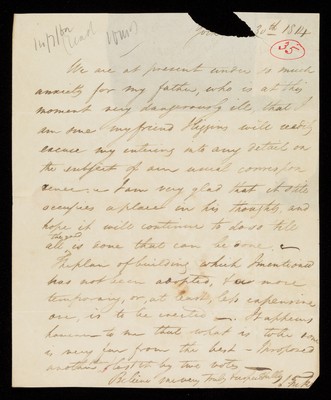 30th 1814
35
We are at present under so much
anxiety for my father, who is at this
moment very dangerously ill, that I
am sure my friend Higgins will readily
excuse my entering into any detail on
the subject of our usual correspon
dence; - I am very glad that it still
occupies a place in his thoughts, and
hope it will continue to do so till
all is done that can be done. -
The plan of building which I mentioned
has not been adopted, & a more
temporary, or, at least, less expensive
one, is to be erected -. It happens
however to me that what is to be done
is very far from the best - I proposed
another & lost it by one vote -
Believe me very truly & respectfully